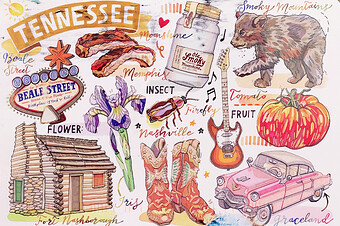 TENNESSEE
Moonshine
Smoky Mountains
Beale
Street
Memphis
Smoky
BEALE STREET
INSECT
Firefly
Tomato
FRUIT
FLOWER
Nashville
Iris
Fort Nashborough
Graceland